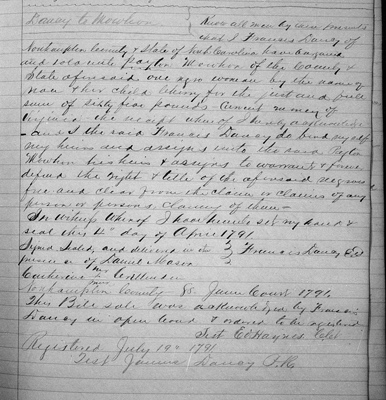 Dancy to Mowhon
Know all men by these presents
that I Francis Dancy of
Northampton County & State of North Carolina have bargained
and sold unto Payton Mowhon of the County &
State aforesaid one negro woman by the name of
& her child Cherry for the just and full
sum of sixty five pounds current money of
Virginia the receipt where of I hereby acknowledge
and I the said Francis Dancy do bind myself
my heirs and assigns unto the said Payton
Mowhon his heirs & assigns to warrant & forever
defend the right & title of the aforesaid negroes
free and clear from the claim or claims of any
person or persons claiming of them
In witness whereof I have hereunto set my hand &
seal this 4th day of April 1791
Signed Sealed, and delivered in the } Francis Dancy
presence of Daniel Mason
Catherine
Northampton County June Court 1791
This Bill sale was acknowledged by Francis
Dancy in open Court & ordered to be registered
Test Ed Haynes Clk
Registered July 19th 1791
Test James Dancy P.R.